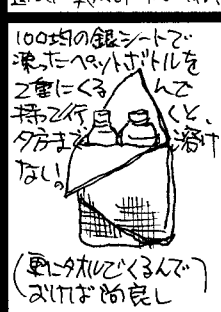 100均の銀シートで
凍ったペットボトルを
2重にくるんで
持って行くと、
夕方まで溶け
ない。
(更にタオルでくるんで
おけば尚良し)